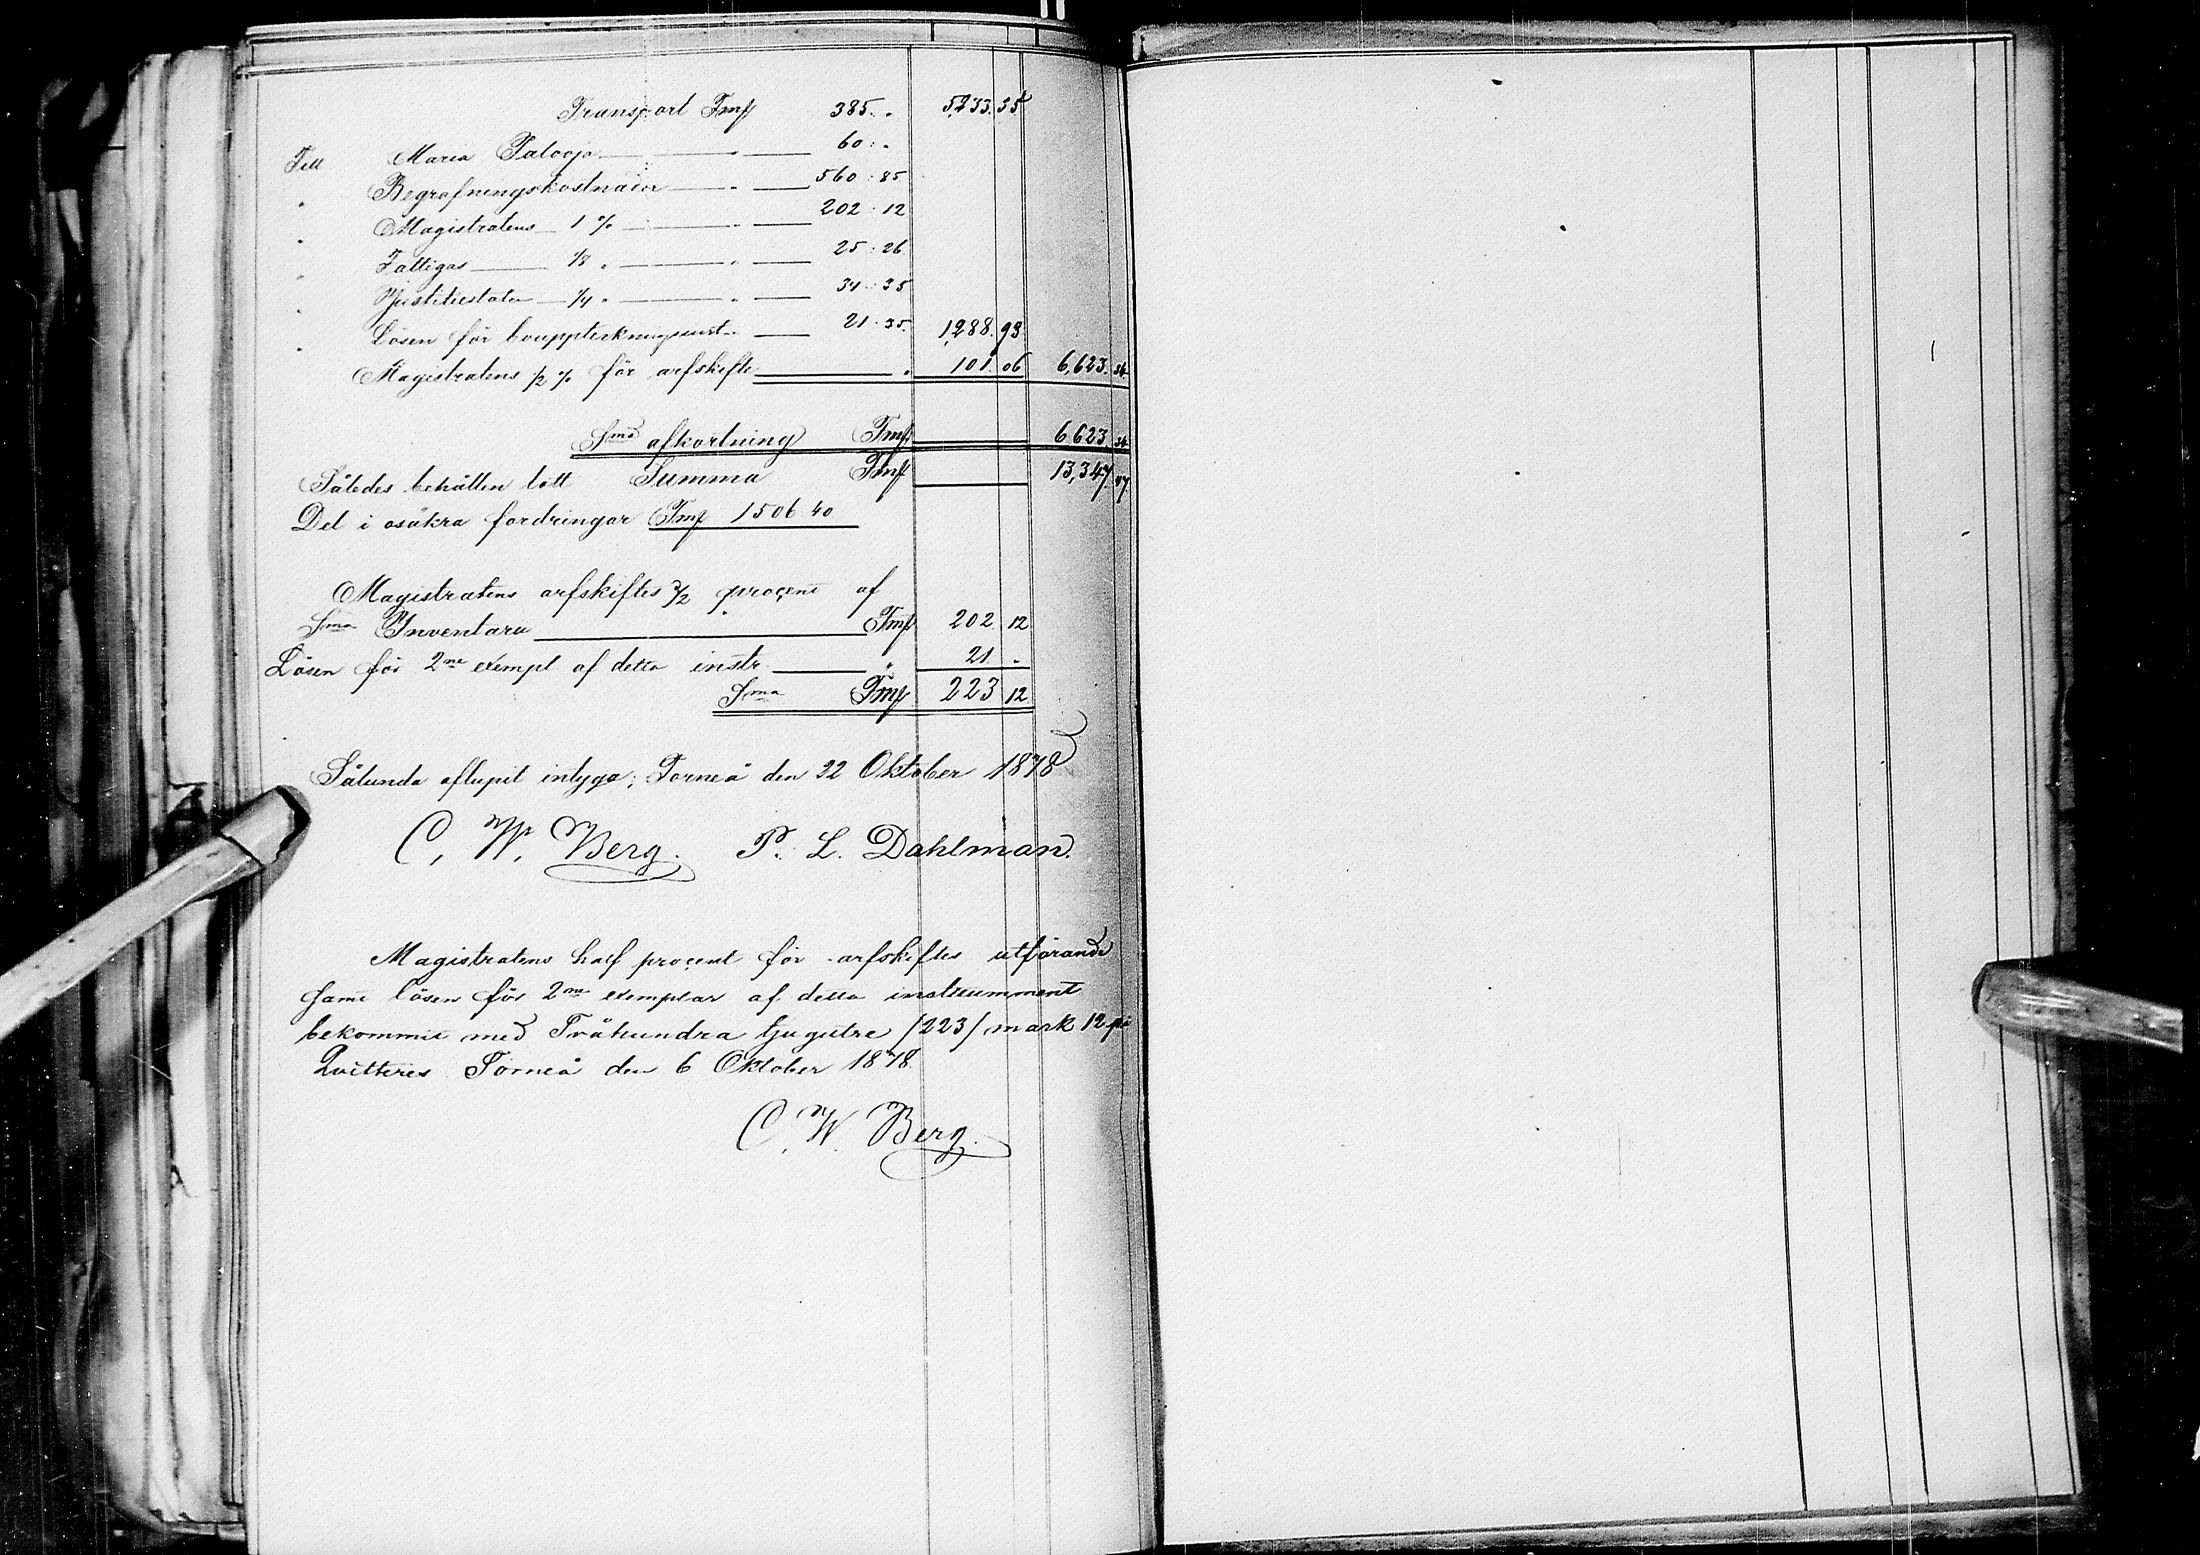 Transport Fmk 385. . 5,233. 35
Till Maria Palooja — " — 60: .
" Begrafningskostnader — " — 560: 85
" Magistratens 1 % — " — 202: 12
" Fattigas 1/8 " — " — 25: 26
" Justitiestaten 1/4 " — " — 34: 35
" Lösen för bouppteckningsinst — 21. 35. 1,288. 93
Magistratens 1/2 % för arfskifte — " 101 06 6,623. 34
Sma afkortning Fmk 6 623 34
Således behållen lott Summa Fmk 13,347. 47
Del i osäkra fordringar Fmk 1506 40
Magistratens arfskiftes 1/2 procent af
Sma Inventaru — Fmk 202 12
Lösen för 2ne exempl af detta instr — " 21 .
Sma Fmk 223 12
Sålunda aflupit intyga; Torneå den 22 Oktober 1878
C. W. Berg. P. L. Dahlman.
Magistratens half procent för arfskiftes utförande
samt lösen för 2ne exemplar af detta instrumment
bekommit med Tvåhundra tjugutre /223/ mark 12 pi
Qvitteres Torneå den 6 Oktober 1878.
C. W. Berg.